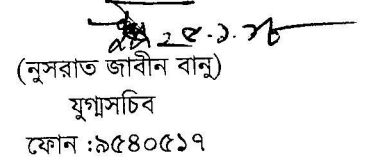 ২৫.১.১৮
(নুসরাত জাবীন বানু)
যুগ্মসচিব
ফোন :৯৫৪০৫১৭